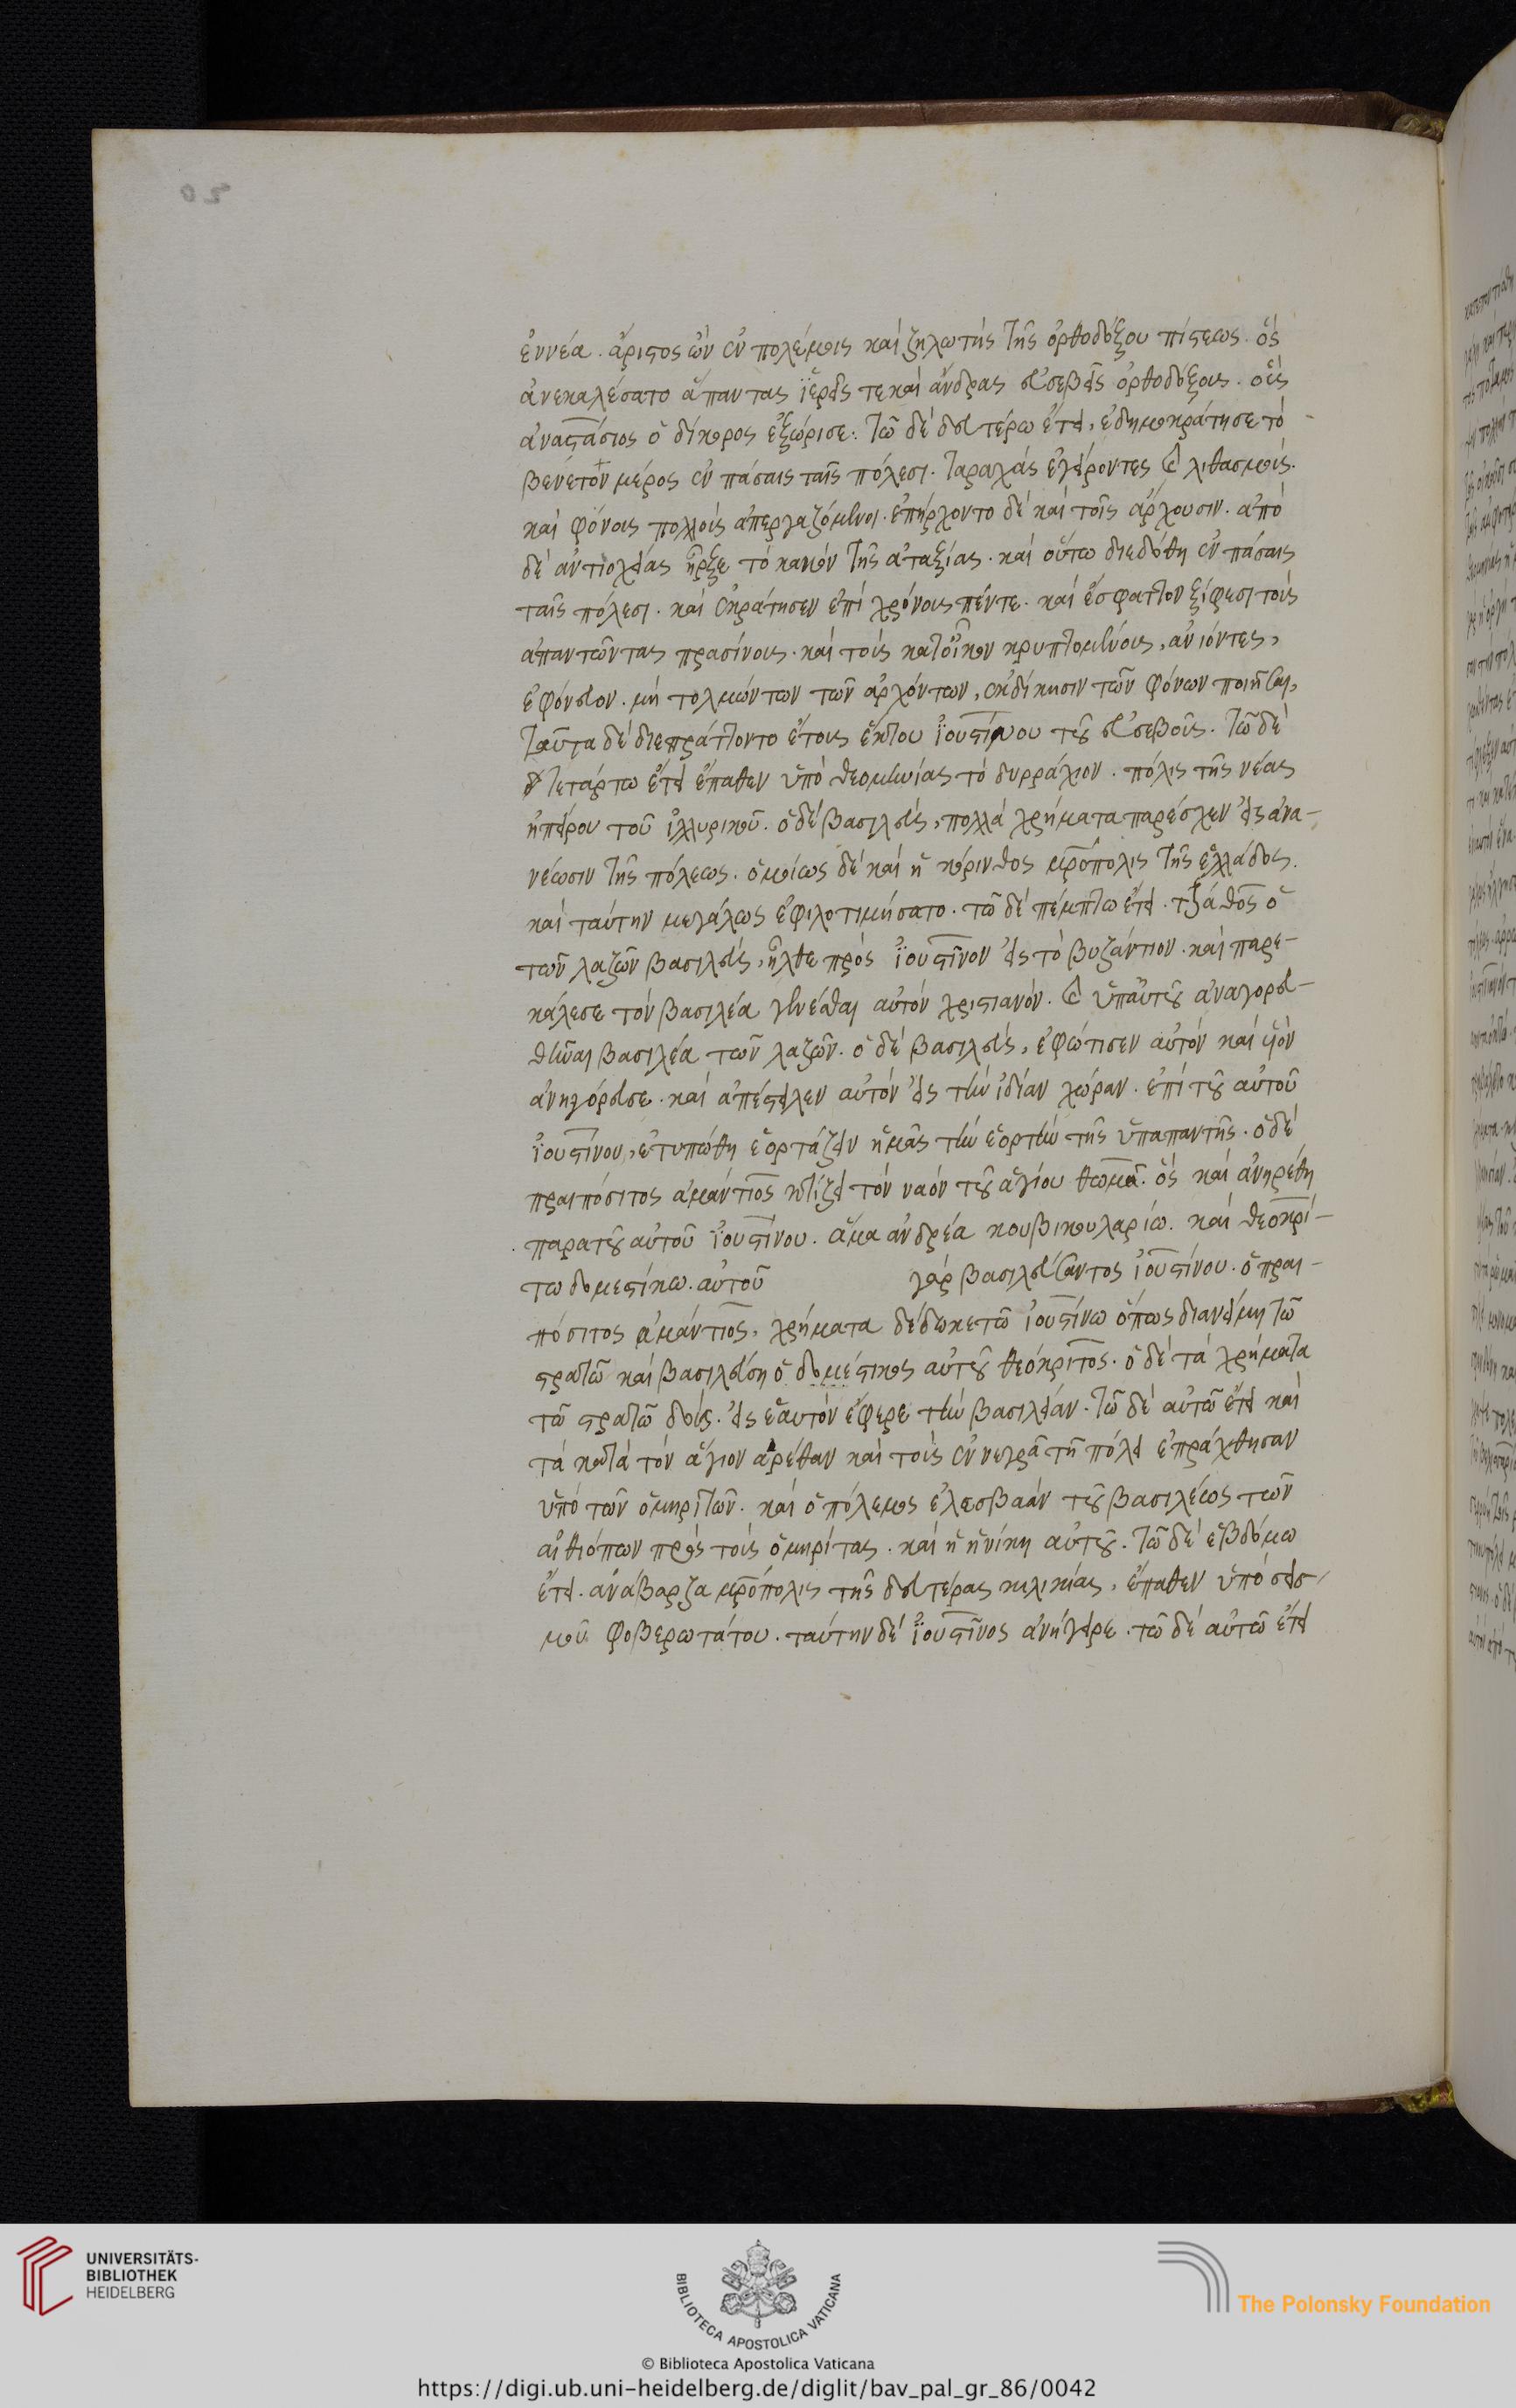 ἐννέα. ἄριστος ὢν ἐν πολέμοις καὶ ζηλωτὴς τῆς ὀρθοδόξου πίστεως. ὃς
ἀνεκαλέσατο ἅπαντας ἱερεῖς τε καὶ ἄνδρας εὐσεβεῖς ὀρθοδόξους. οὓς
ἀναστάσιος ὁ δίκορος ἐξώρισε. τῶ δὲ δευτέρω ἔτει, ἐδημοκράτησε τὸ
βένετον μέρος ἐν πάσαις ταῖς πόλεσι. ταραχὰς ἐγείροντες καὶ λιθασμοὺς.
καὶ φόνους πολλοὺς ἀπεργαζόμενοι. ἐπήρχοντο δὲ καὶ τοῖς ἄρχουσιν. ἀπὸ
δὲ ἀντιοχείας ἦρξε τὸ κακὸν τῆς ἀταξίας. καὶ οὕτω διεδόθη ἐν πάσαις
ταῖς πόλεσι. καὶ ἐκράτησεν ἐπὶ χρόνους πέντε. καὶ ἔσφαττον ξίφεσι τοὺς
ἀπαντῶντας πρασίνους. καὶ τοὺς κατοῖκον κρυπτομένους, ἀνιόντες,
ἐφόνευον. μὴ τολμώντων τῶν ἀρχόντων, ἐκδίκησιν τῶν φόνων ποιῆσαι,
ταῦτα δὲ διεπράττοντο ἔτους ἕκτου ἰουστίνου τοῦ εὐσεβοῦς. τῶ δὲ
τετάρτω ἔτει ἔπαθεν ὑπὸ θεομηνίας τὸ δυρράχιον. πόλις τῆς νέας
ἠπείρου τοῦ ἰλλυρικοῦ. ὁ δὲ βασιλεὺς, πολλὰ χρήματα παρέσχεν εἰς ἀνα-
νέωσιν τῆς πόλεως. ὁμοίως δὲ καὶ ἡ κόρινθος μρόπολις τῆς ἑλλάδος.
καὶ ταύτην μεγάλως ἐφιλοτιμήσατο. τῶ δὲ πέμπτω ἔτει. τζάθος ὁ
τῶν λαζῶν βασιλεὺς, ἦλθε πρὸς ἰουστῖνον εἰς τὸ βυζάντιον. καὶ παρε-
κάλεσε τὸν βασιλέα γενέσθαι αὐτὸν χριστιανόν. καὶ ὑπαὐτοῦ ἀναγορευ-
θῆναι βασιλέα τῶν λαζῶν. ὁ δὲ βασιλεὺς, ἐφώτισεν αὐτὸν καὶ υἱὸν
ἀνηγόρευσε. καὶ ἀπέστειλεν αὐτὸν εἰς τὴν ἰδίαν χώραν. ἐπὶ τοῦ αὐτοῦ
ἰουστίνου, ἐτυπώθη ἑορτάζειν ἡμᾶς τὴν ἑορτὴν τῆς ὑπαπαντῆς. ὁ δὲ
πραιπόσιτος ἀμάντιος κτίζει τὸν ναὸν τοῦ ἁγίου θωμᾶ. ὃς καὶ ἀνηρέθη
παρατοῦ αὐτοῦ ἰουστίνου. ἅμα ἀνδρέα κουβικουλαρίω. καὶ θεοκρί-
τω δομεστίκω. αὐτοῦ γὰρ βασιλεύσαντος ἰουστίνου. ὁ πραι-
πόσιτος ἀμάντιος, χρήματα δέδωκε τῶ ἰουστίνω ὅπως διανείμη τῶ
στρατῶ καὶ βασιλεύση ὁ δομέστικος αὐτοῦ θεόκριτος. ὁ δὲ τὰ χρήματα
τῶ στρατῶ δοὺς. εἰς ἑαυτὸν ἔφερε τὴν βασιλείαν. τῶ δὲ αὐτῶ ἔτει καὶ
τὰ κατὰ τὸν ἅγιον ἀρέθαν καὶ τοὺς ἐν νεγρᾶ τῆ πόλει ἐπράχθησαν
ὑπὸ τῶν ὁμηριτῶν. καὶ ὁ πόλεμος ἐλεσβαὰν τοῦ βασιλέως τῶν
αἰθιόπων πρὸς τοὺς ὁμηρίτας. καὶ ἡ ἡνίκη αὐτοῦ. τῶ δὲ ἑβδόμω
ἔτει. ἀνάβαρζα μρόπολις τῆς δευτέρας κιλικίας, ἔπαθεν ὑπὸ σεισ-
μοῦ φοβερωτάτου. ταύτην δὲ ἰουστῖνος ἀνήγειρε. τῶ δὲ αὐτῶ ἔτει
UNIVERSITÄTS-
BIBLIOTHEK
HEIDELBERG
BIBLIOTECA APOSTOLICA VATICANA
The Polonsky Foundation
© Biblioteca Apostolica Vaticana
https://digi.ub.uni-heidelberg.de/diglit/bav_pal_gr_86/0042